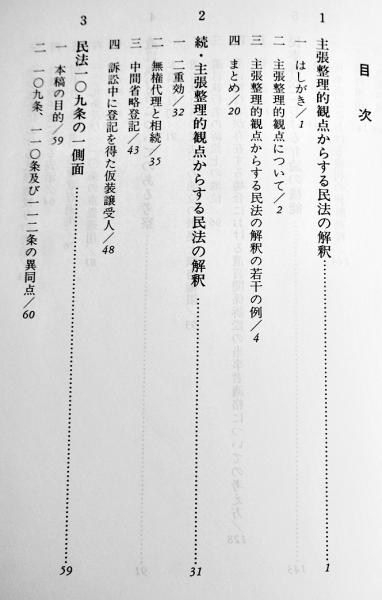 目次
1 主張整理的観点からする民法の解釈……1
一 はしがき／1
二 主張整理的観点について／2
三 主張整理的観点からする民法の解釈の若干の例／4
四 まとめ／20
2 続・主張整理的観点からする民法の解釈……31
一 二重効／32
二 無権代理と相続／35
三 中間省略登記／43
四 訴訟中に登記を得た仮装譲受人／48
3 民法一〇九条の一側面……59
一 本稿の目的／59
二 一〇九条、一一〇条及び一一二条の異同点／60